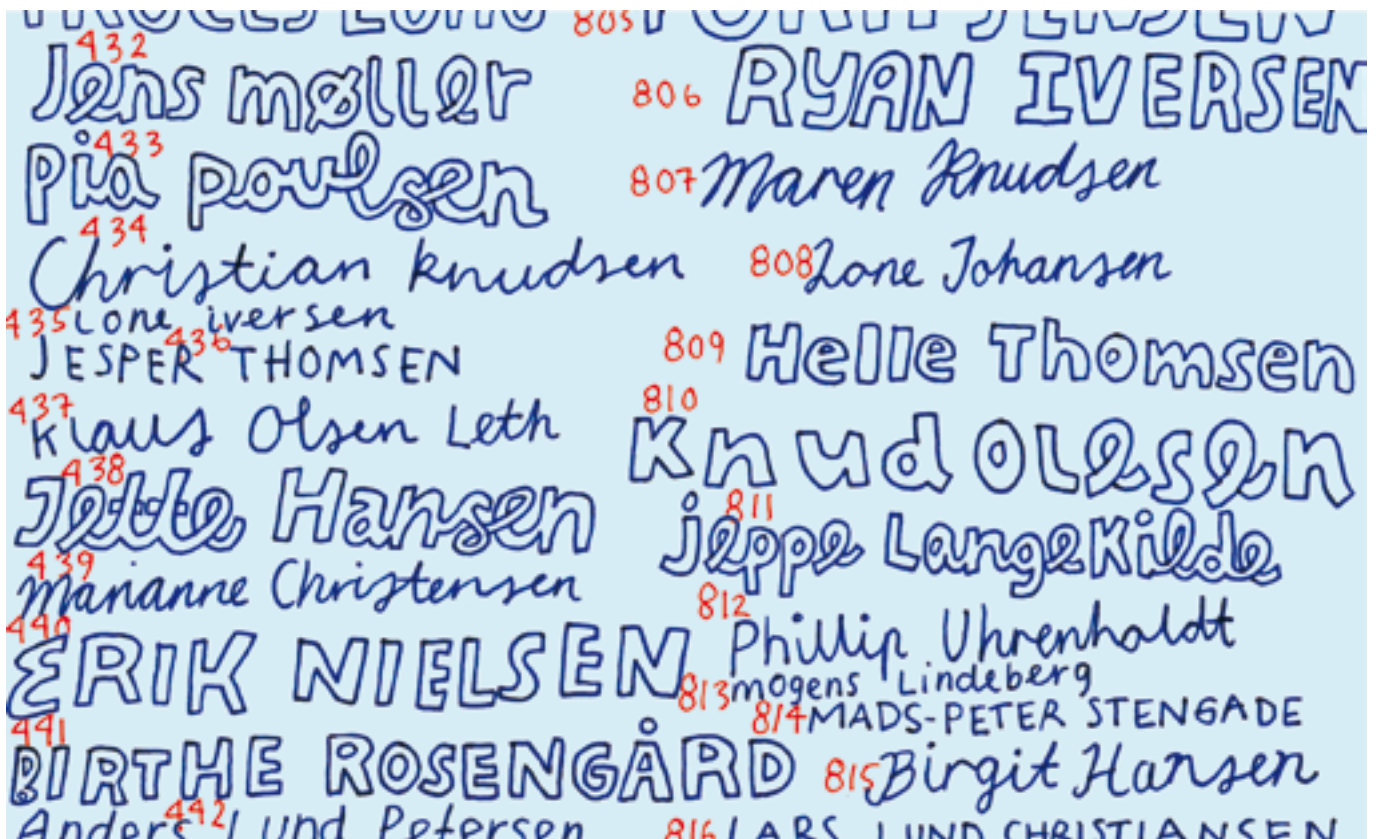 805
432
Jens møller
433
Pia Poulsen
434
Christian Knudsen
435 Lone iversen
436
JESPER THOMSEN
437
Klaus Olsen Leth
438
Jette Hansen
439
Marianne Christensen
440
ERIK NIELSEN
441
BIRTHE ROSENGÅRD
442
Anders Lund Petersen
JENSEN
806 RYAN IVERSEN
807 Maren Knudsen
808 Lone Johansen
809 Helle Thomsen
810
Knud Olesen
811
jeppe Langekilde
812
Phillip Uhrenholdt
813 mogens Lindeberg
814 MADS-PETER STENGADE
815 Birgit Hansen
816 LARS LUND CHRISTIANSEN